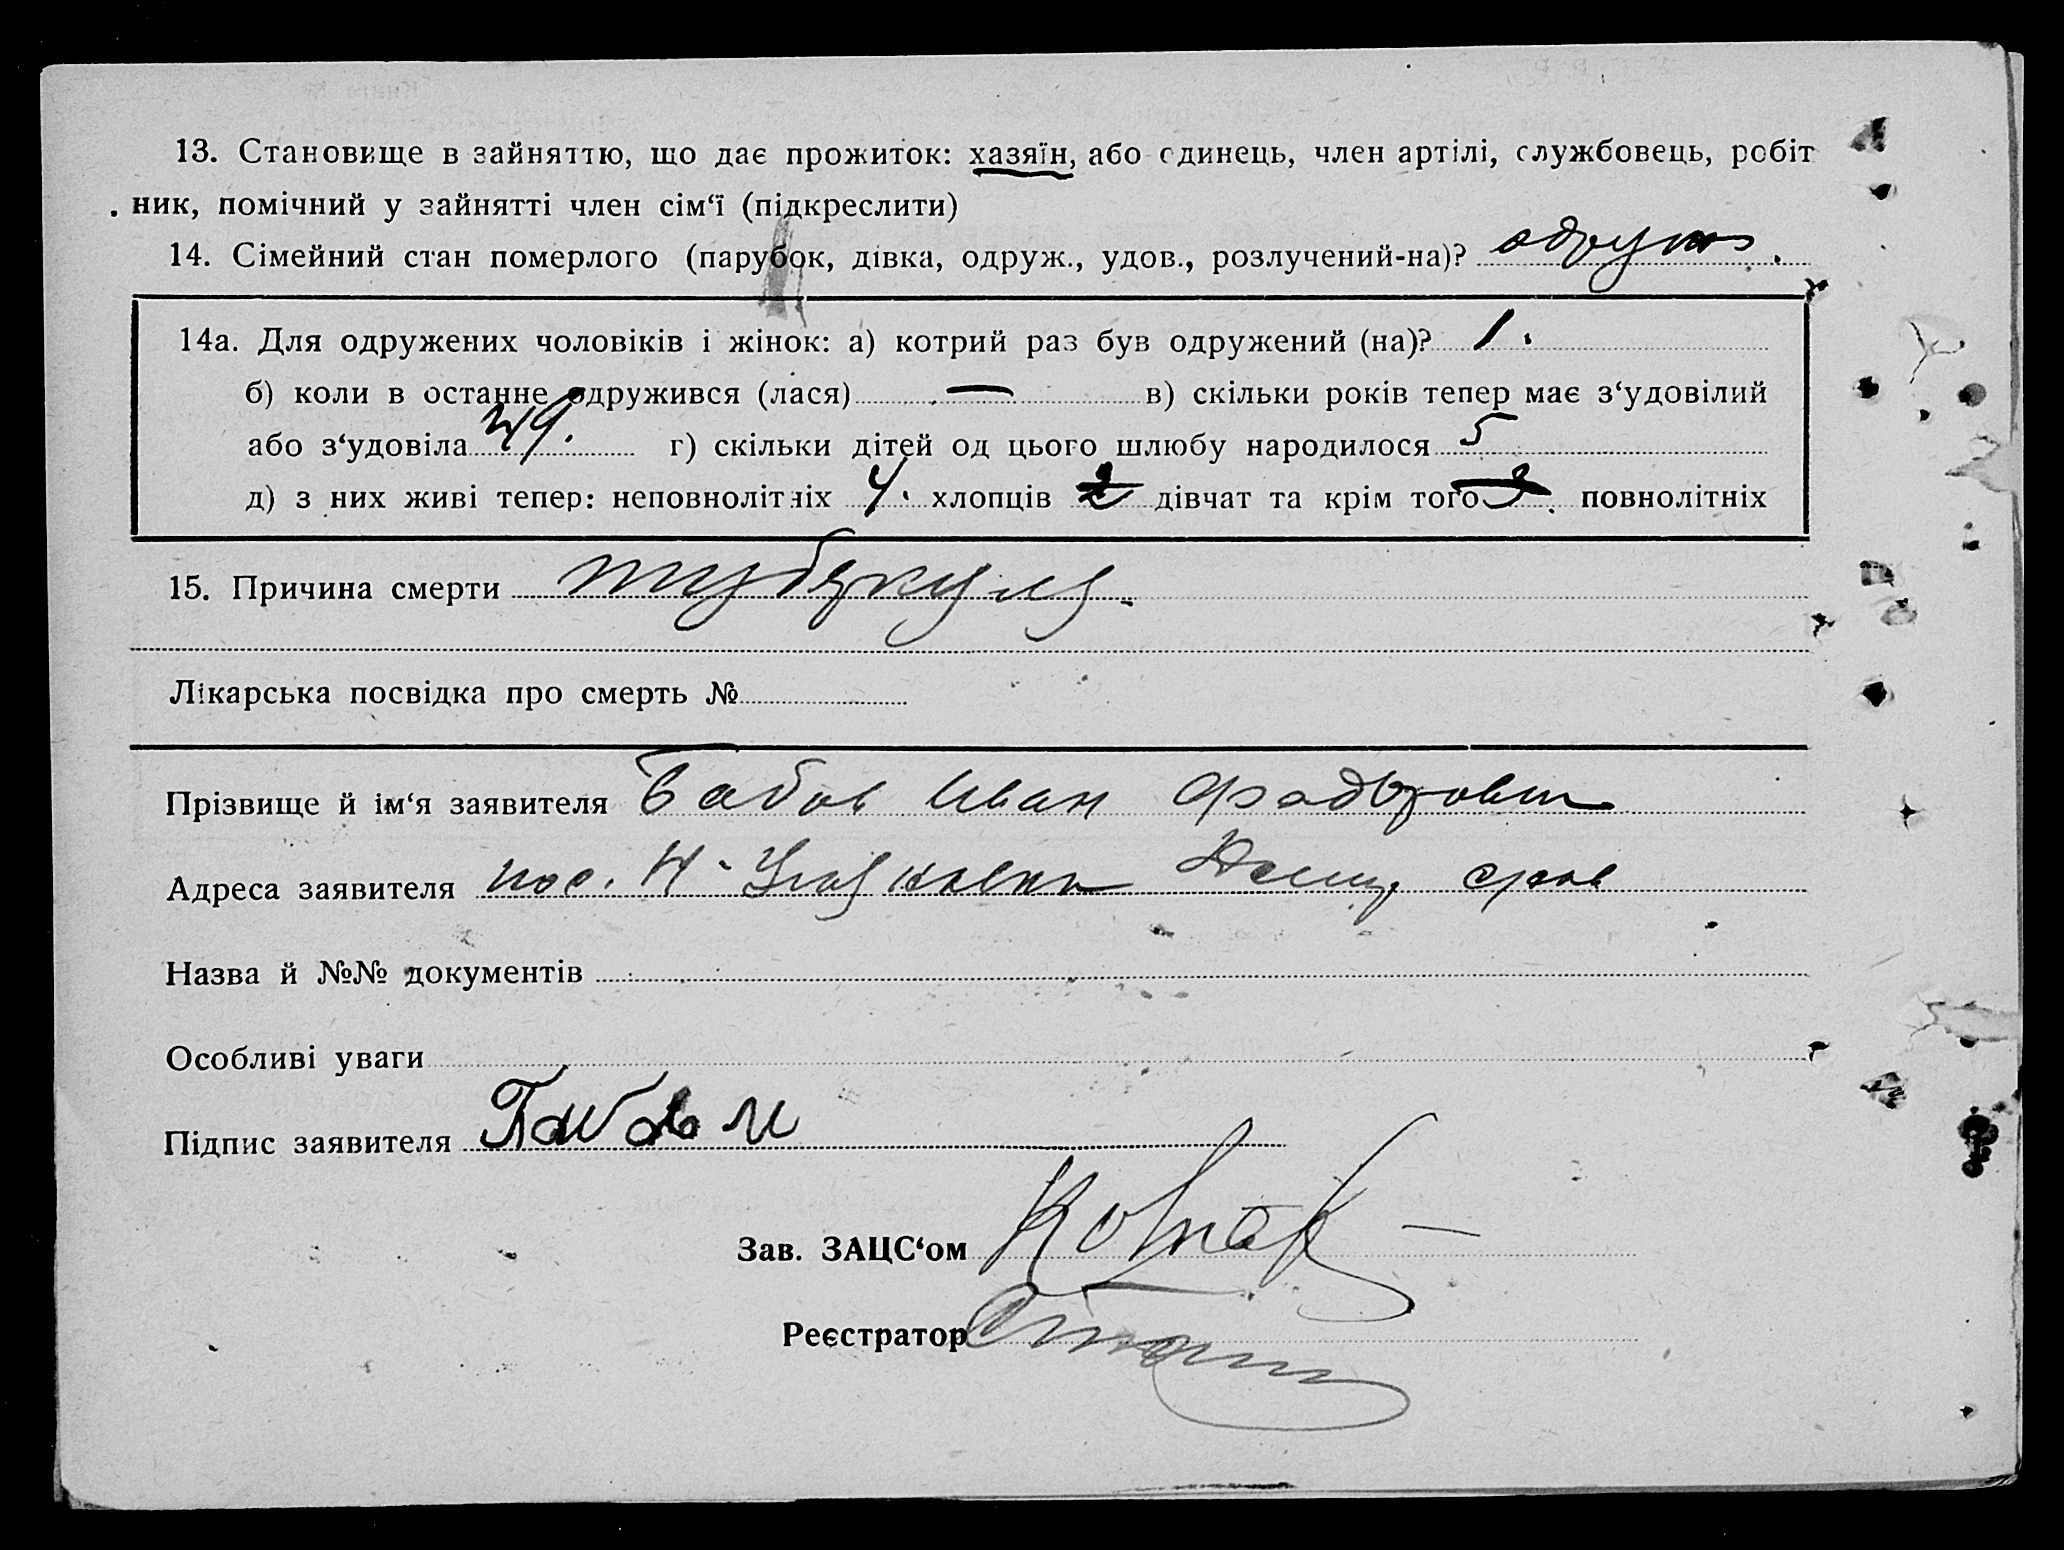 13. Становище в зайняттю, що дає прожиток: хазяїн, або єдинець, член артілі, службовець, робіт
ник, помічний у зайнятті член сім‘ї (підкреслити)
14. Сімейний стан померлого (парубок, дівка, одруж., удов., розлучений-на)? одруж.
14а. Для одружених чоловіків і жінок: а) котрий раз був одружений (на)? 1.
б) коли в останнє одружився (лася) — в) скільки років тепер має з‘удовілий
або з‘удовіла 49. г) скільки дітей од цього шлюбу народилося 5
д) з них живі тепер: неповнолітніх 4. хлопців дівчат та крім того повнолітніх
15. Причина смерти туберкульоз
Лікарська посвідка про смерть №
Прізвище й ім‘я заявителя Бабов Иван
Адреса заявителя пос. Н-
Назва й №№ документів
Особливі уваги
Підпис заявителя
Зав. ЗАЦС‘ом
Реєстратор